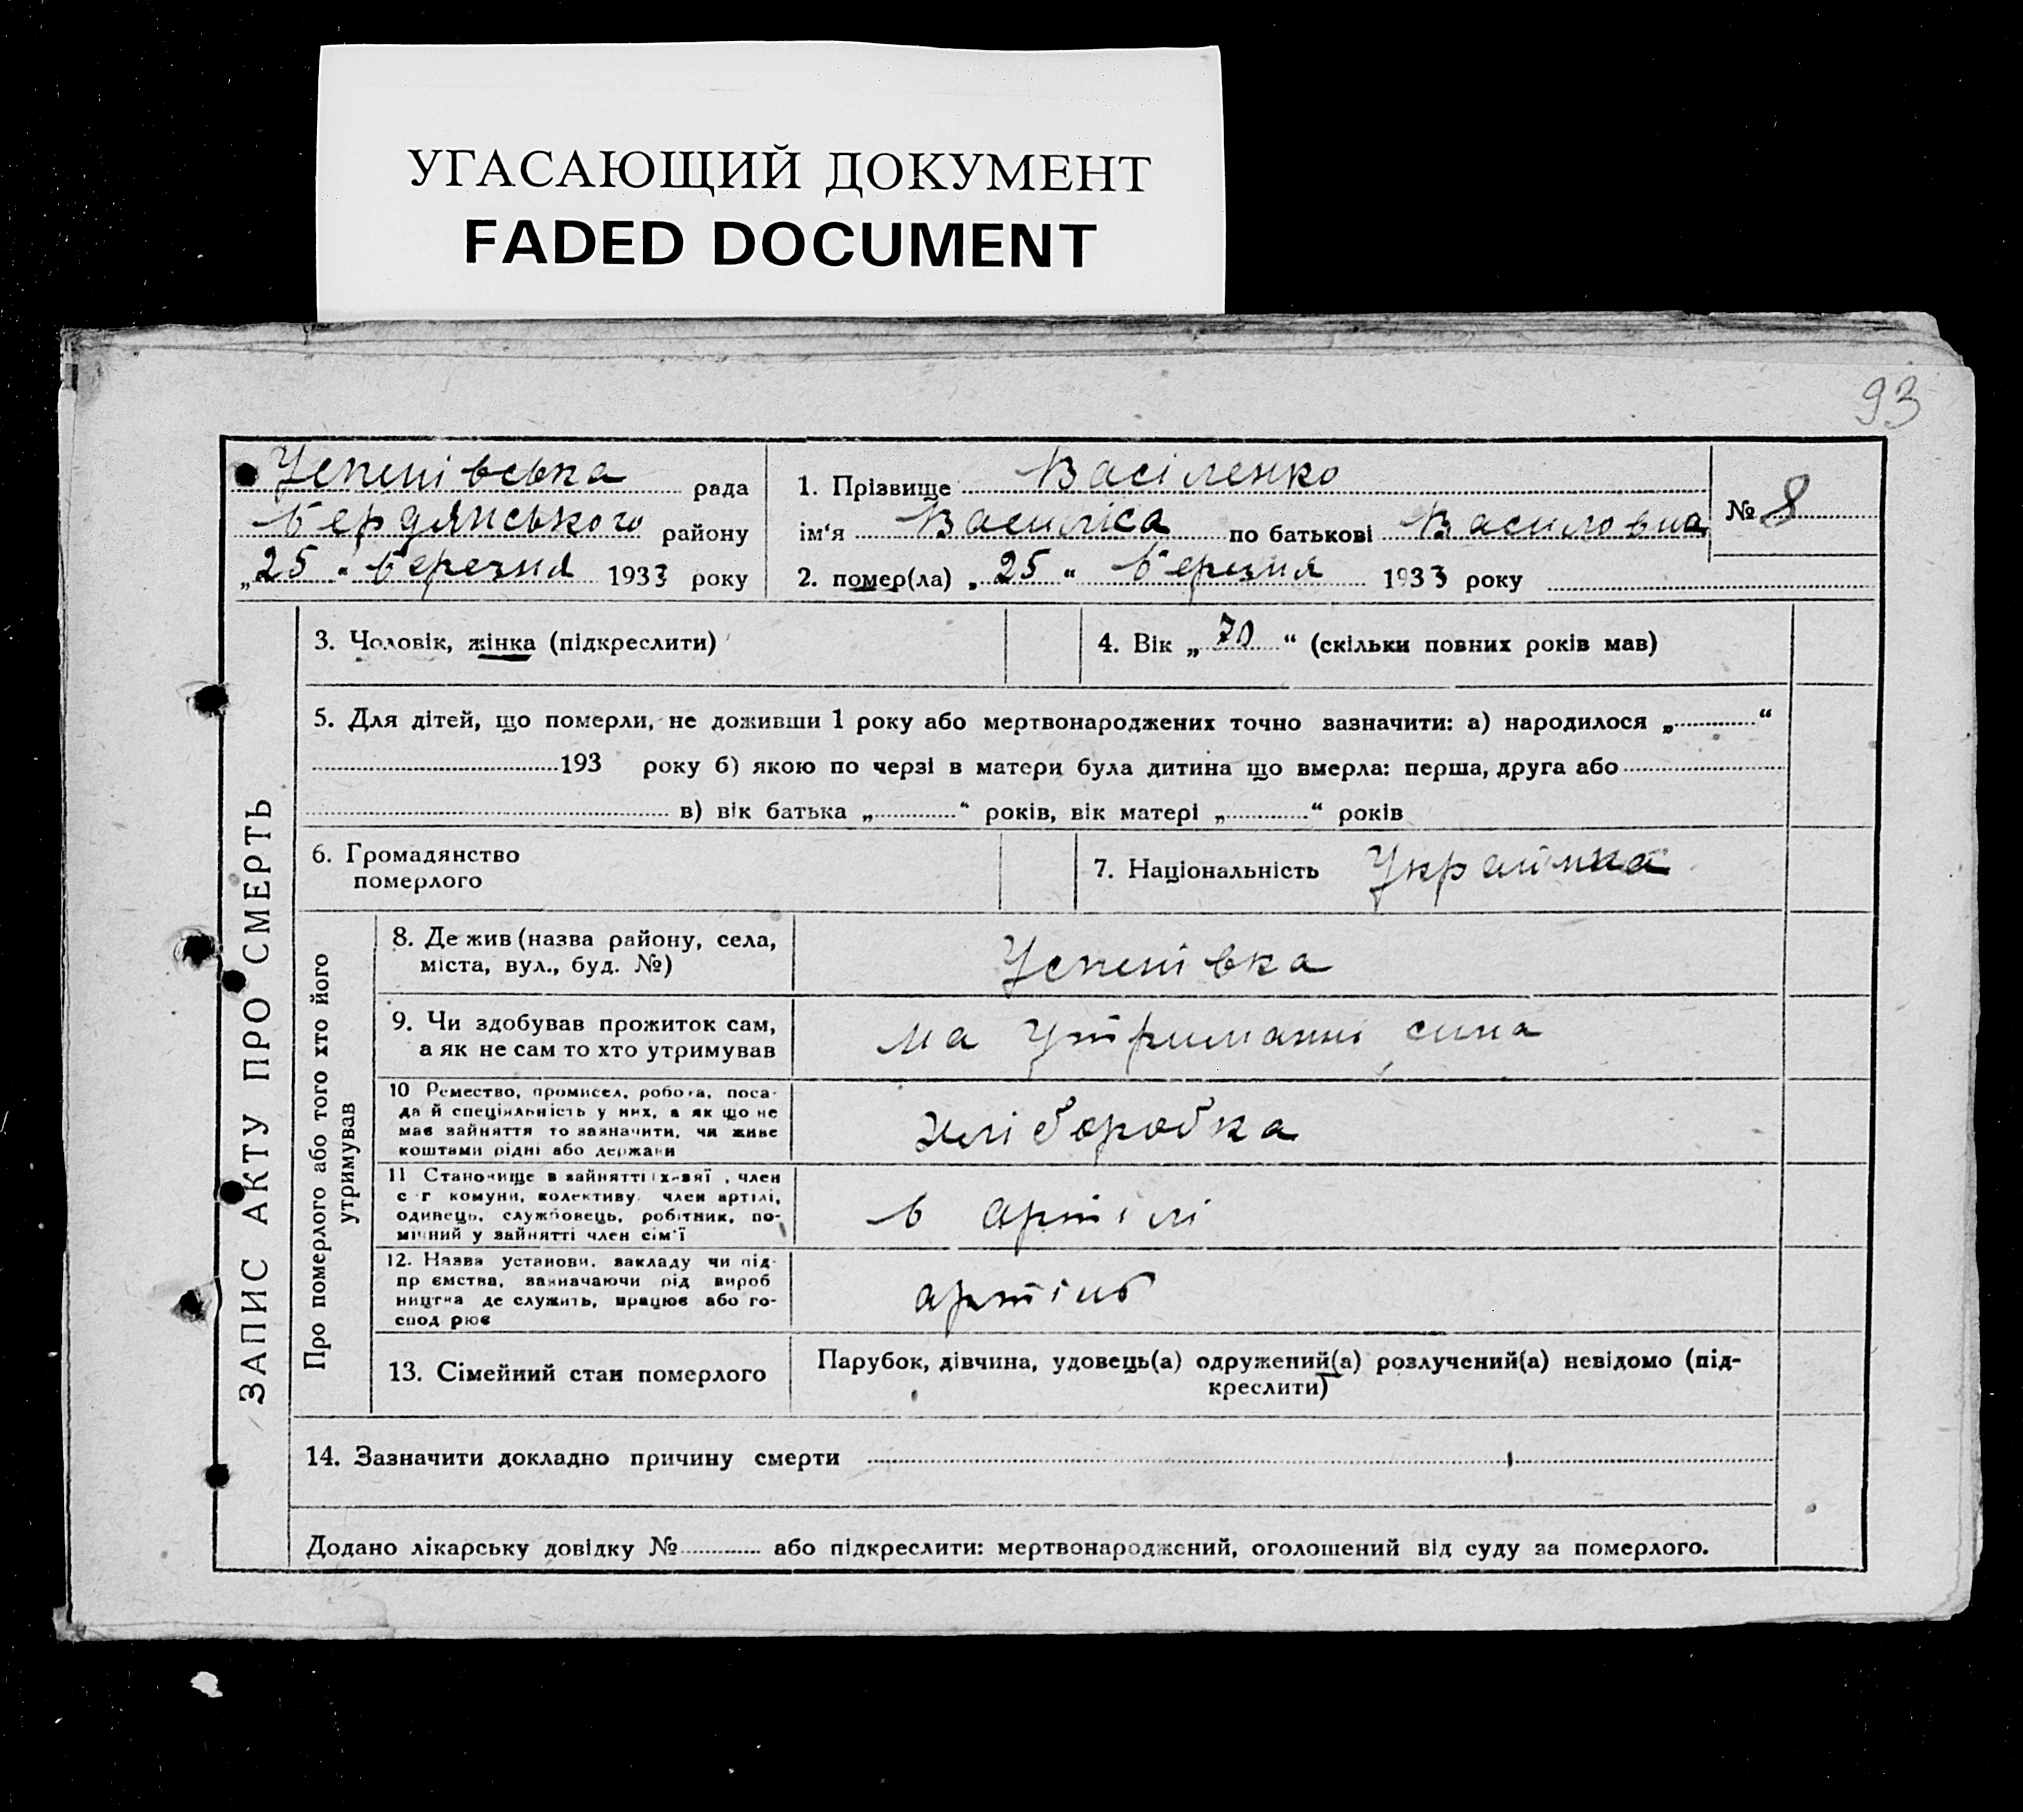 УГАСАЮЩИЙ ДОКУМЕНТ
FADED DOCUMENT
93
Успенівська рада
Бердянського району
„25“ березня 1933 року
1. Прізвище Васіленко
ім'я Василіса по батькові Василовна
№ 8
2. помер(ла) „25“ березня 1933 року
ЗАПИС АКТУ ПРО СМЕРТЬ
3. Чоловік, жінка (підкреслити)
4. Вік „70“ (скільки повних років мав)
5. Для дітей, що померли, не доживши 1 року або мертвонароджених точно зазначити: а) народилося „ “
193 року б) якою по черзі в матери була дитина що вмерла: перша, друга або
в) вік батька „ “ років, вік матері „ “ років
6. Громадянство
померлого
7. Національність Украінка
Про померлого або того хто його
утримував
8. Де жив (назва району, села,
міста, вул., буд. №)
Успенівка
9. Чи здобував прожиток сам,
а як не сам то хто утримував
на утриманні сина
10 Ремество, промисел, робота, поса-
да й спеціяльність у них, а як що не
має зайняття то зазначити, чи живе
коштами рідні або держави
хліборобка
11 Становище в зайнятті , член
с г комуни, колективу, член артілі,
одинець, службовець, робітник, по-
мічний у зайнятті член сім'ї
в артілі
12. Назва установи, закладу чи під-
пр ємства, зазначаючи рід вироб
ництва де служить, працює або го-
спод рює
артіль
13. Сімейний стан померлого
Парубок, дівчина, удовець(а) одружений(а) розлучений(а) невідомо (під-
креслити)
14. Зазначити докладно причину смерти
Додано лікарську довідку № або підкреслити: мертвонароджений, оголошений від суду за померлого.